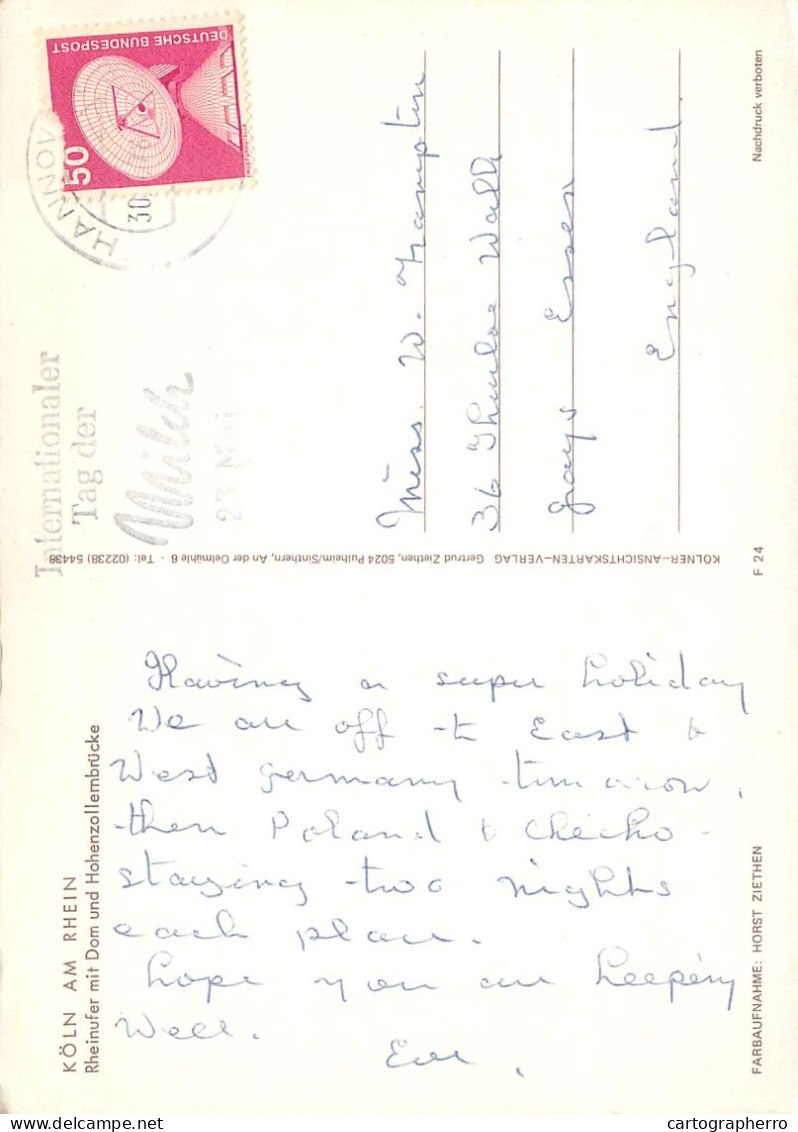 DEUTSCHE BUNDESPOST
50
HANNOV
30
Internationaler
Tag der
Milch
23 Mai
Miss. W. Hampton
36 Thurloe Walk
Grays Essex
England.
Nachdruck verboten
KÖLNER-ANSICHTSKARTEN-VERLAG Gertrud Ziethen, 5024 Pulheim/Sinthern, An der Oelmühle 6 - Tel: (02238) 54438
F 24
KÖLN AM RHEIN
Rheinufer mit Dom und Hohenzollembrücke
Having a super holiday
We are off to East &
West Germany tomorrow,
then Poland & Checko-
staying two nights
each place.
hope you are keeping
Well.
FARBAUFNAHME: HORST ZIETHEN
delcampe.net
cartographerro